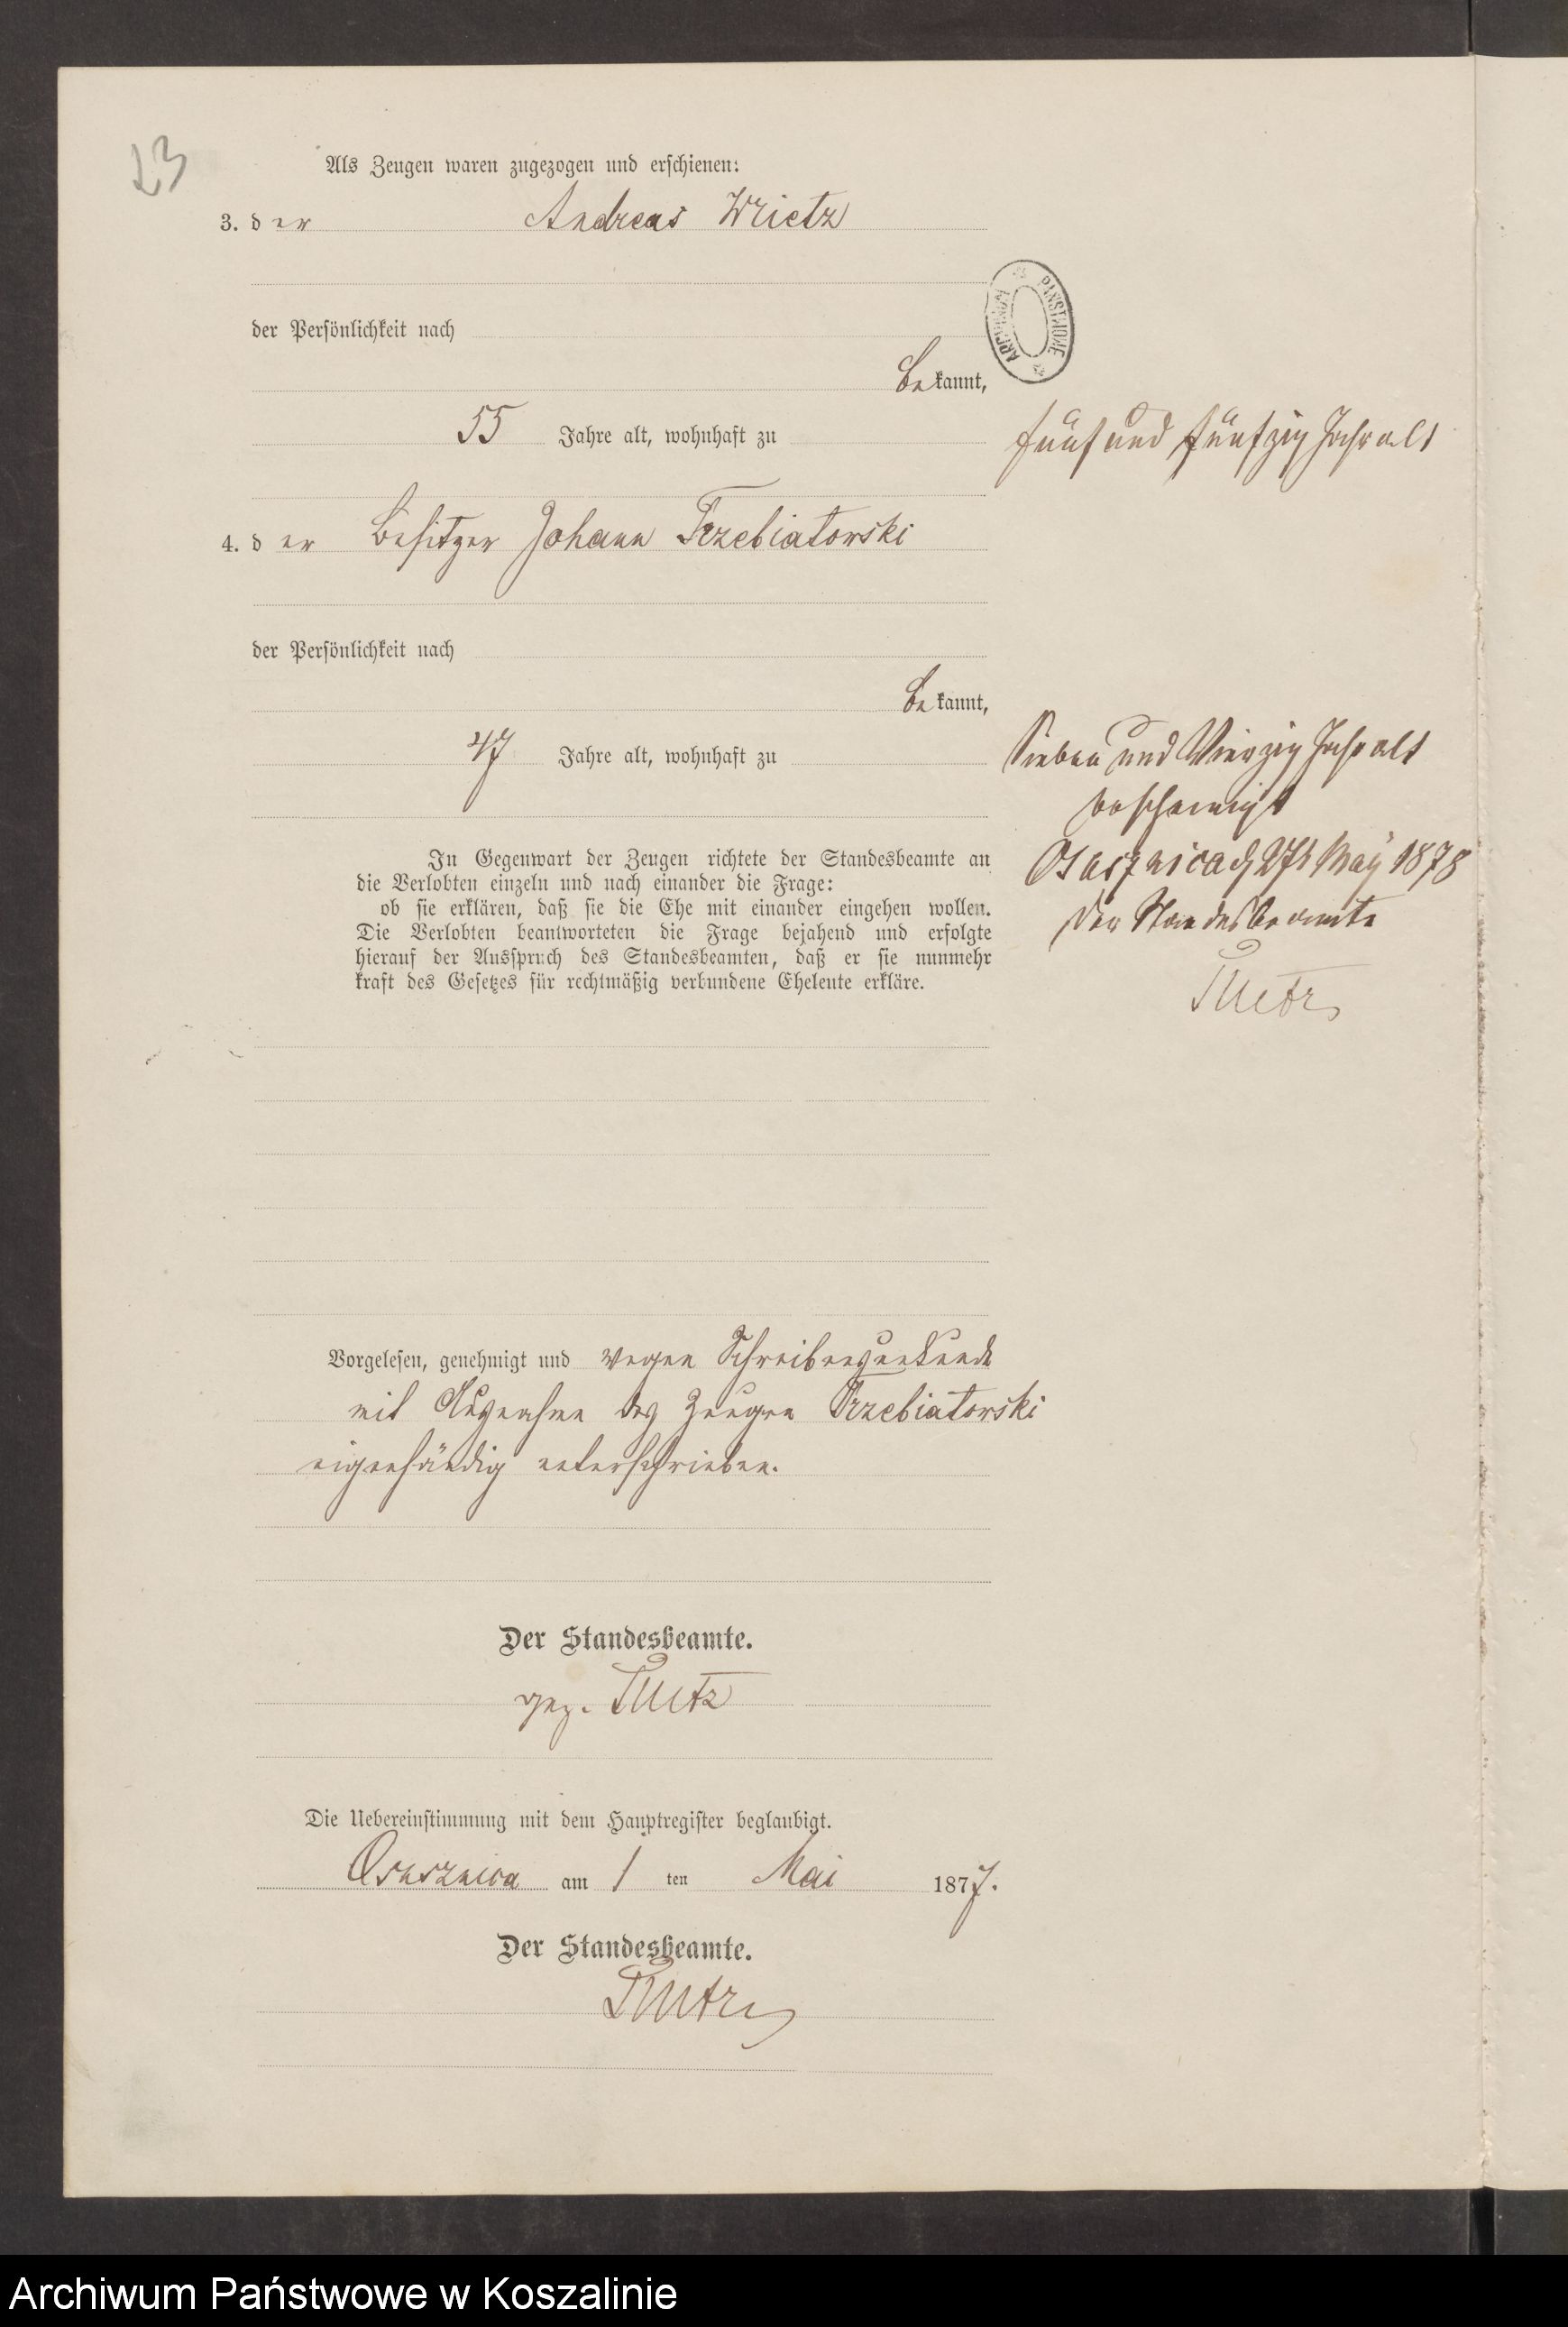 23
Als Zeugen waren zugezogen und erschienen:
3. der Andreas Wrietz
der Persönlichkeit nach
bekannt,
55 Jahre alt, wohnhaft zu
fünf und fünfzig Jahr alt
4. der Besitzer Johann Trzebiatowski
der Persönlichkeit nach
bekannt,
47 Jahre alt, wohnhaft zu
Sieben und Vierzig Jahr alt
bescheinigt
Osusznica d 27t May 1878
Der Standesbeamte
In Gegenwart der Zeugen richtete der Standesbeamte an
die Verlobten einzeln und nach einander die Frage:
ob sie erklären, daß sie die Ehe mit einander eingehen wollen.
Die Verlobten beantworteten die Frage bejahend und erfolgte
hierauf der Ausspruch des Standesbeamten, daß er sie nunmehr
kraft des Gesetzes für rechtmäßig verbundene Eheleute erkläre.
Vorgelesen, genehmigt und wegen Schreibensunkunde
mit Ausnahme des Zeugen Trzebiatowski
eigenhändig unterschrieben.
Der Standesbeamte.
gez.
Die Uebereinstimmung mit dem Hauptregister beglaubigt.
Osusznica am 1 ten Mai 1877.
Der Standesbeamte.
ARCHIWUM PAŃSTWOWE
Archiwum Państwowe w Koszalinie